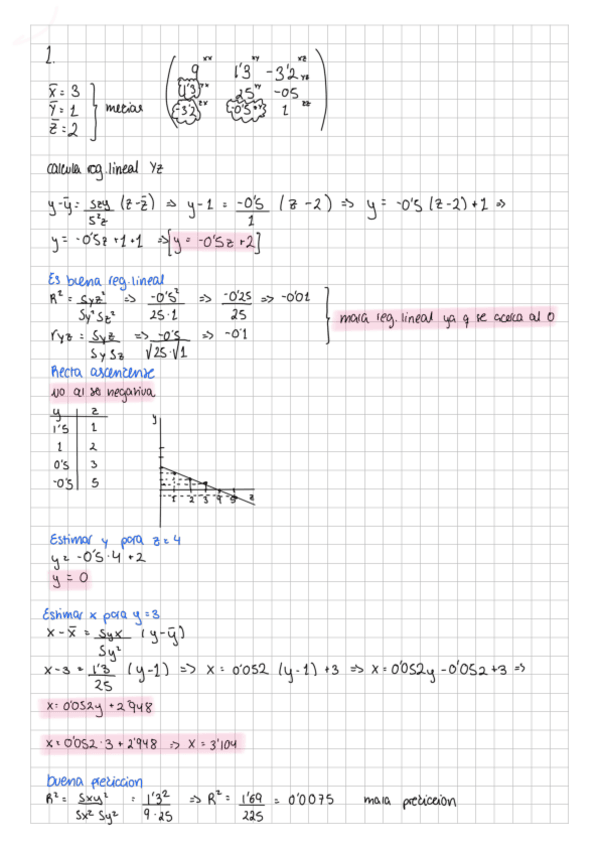 1.
xx xy xz
9 1'3 -3'2
x̄ = 3 1'3 yx 25 yy -05 yz
ȳ = 1 } medias -3'2 zx -0'5 zy 1 zz
z̄ = 2
calcula reg. lineal Yz
y-ȳ = szy/s²z (z-z̄) => y-1 = -0'5/1 (z-2) => y = -0'5(z-2)+1 =>
y = -0'5z+1+1 => [y = -0'5z+2]
Es buena reg. lineal
R² = Syz²/Sy²Sz² => -0'5²/25·1 => -0'25/25 => -0'01
ryz = Syz/SySz => -0'5/√25·√1 => -0'1
} mala reg. lineal ya q se acerca al 0
Recta ascendente
no al se negativa
y z
1'5 1
1 2
0'5 3
-0'5 5
y
1 2 3 4 5 z
Estimar y para z=4
y = -0'5·4+2
y = 0
Estimar x para y=3
x-x̄ = Syx/Sy² (y-ȳ)
x-3 = 1'3/25 (y-1) => x = 0'052 (y-1)+3 => x = 0'052y -0'052+3 =>
x = 0'052y + 2'948
x = 0'052·3+2'948 => x = 3'104
buena prediccion
R² = Sxy²/Sx²Sy² = 1'3²/9·25 => R² = 1'69/225 = 0'0075 mala prediccion